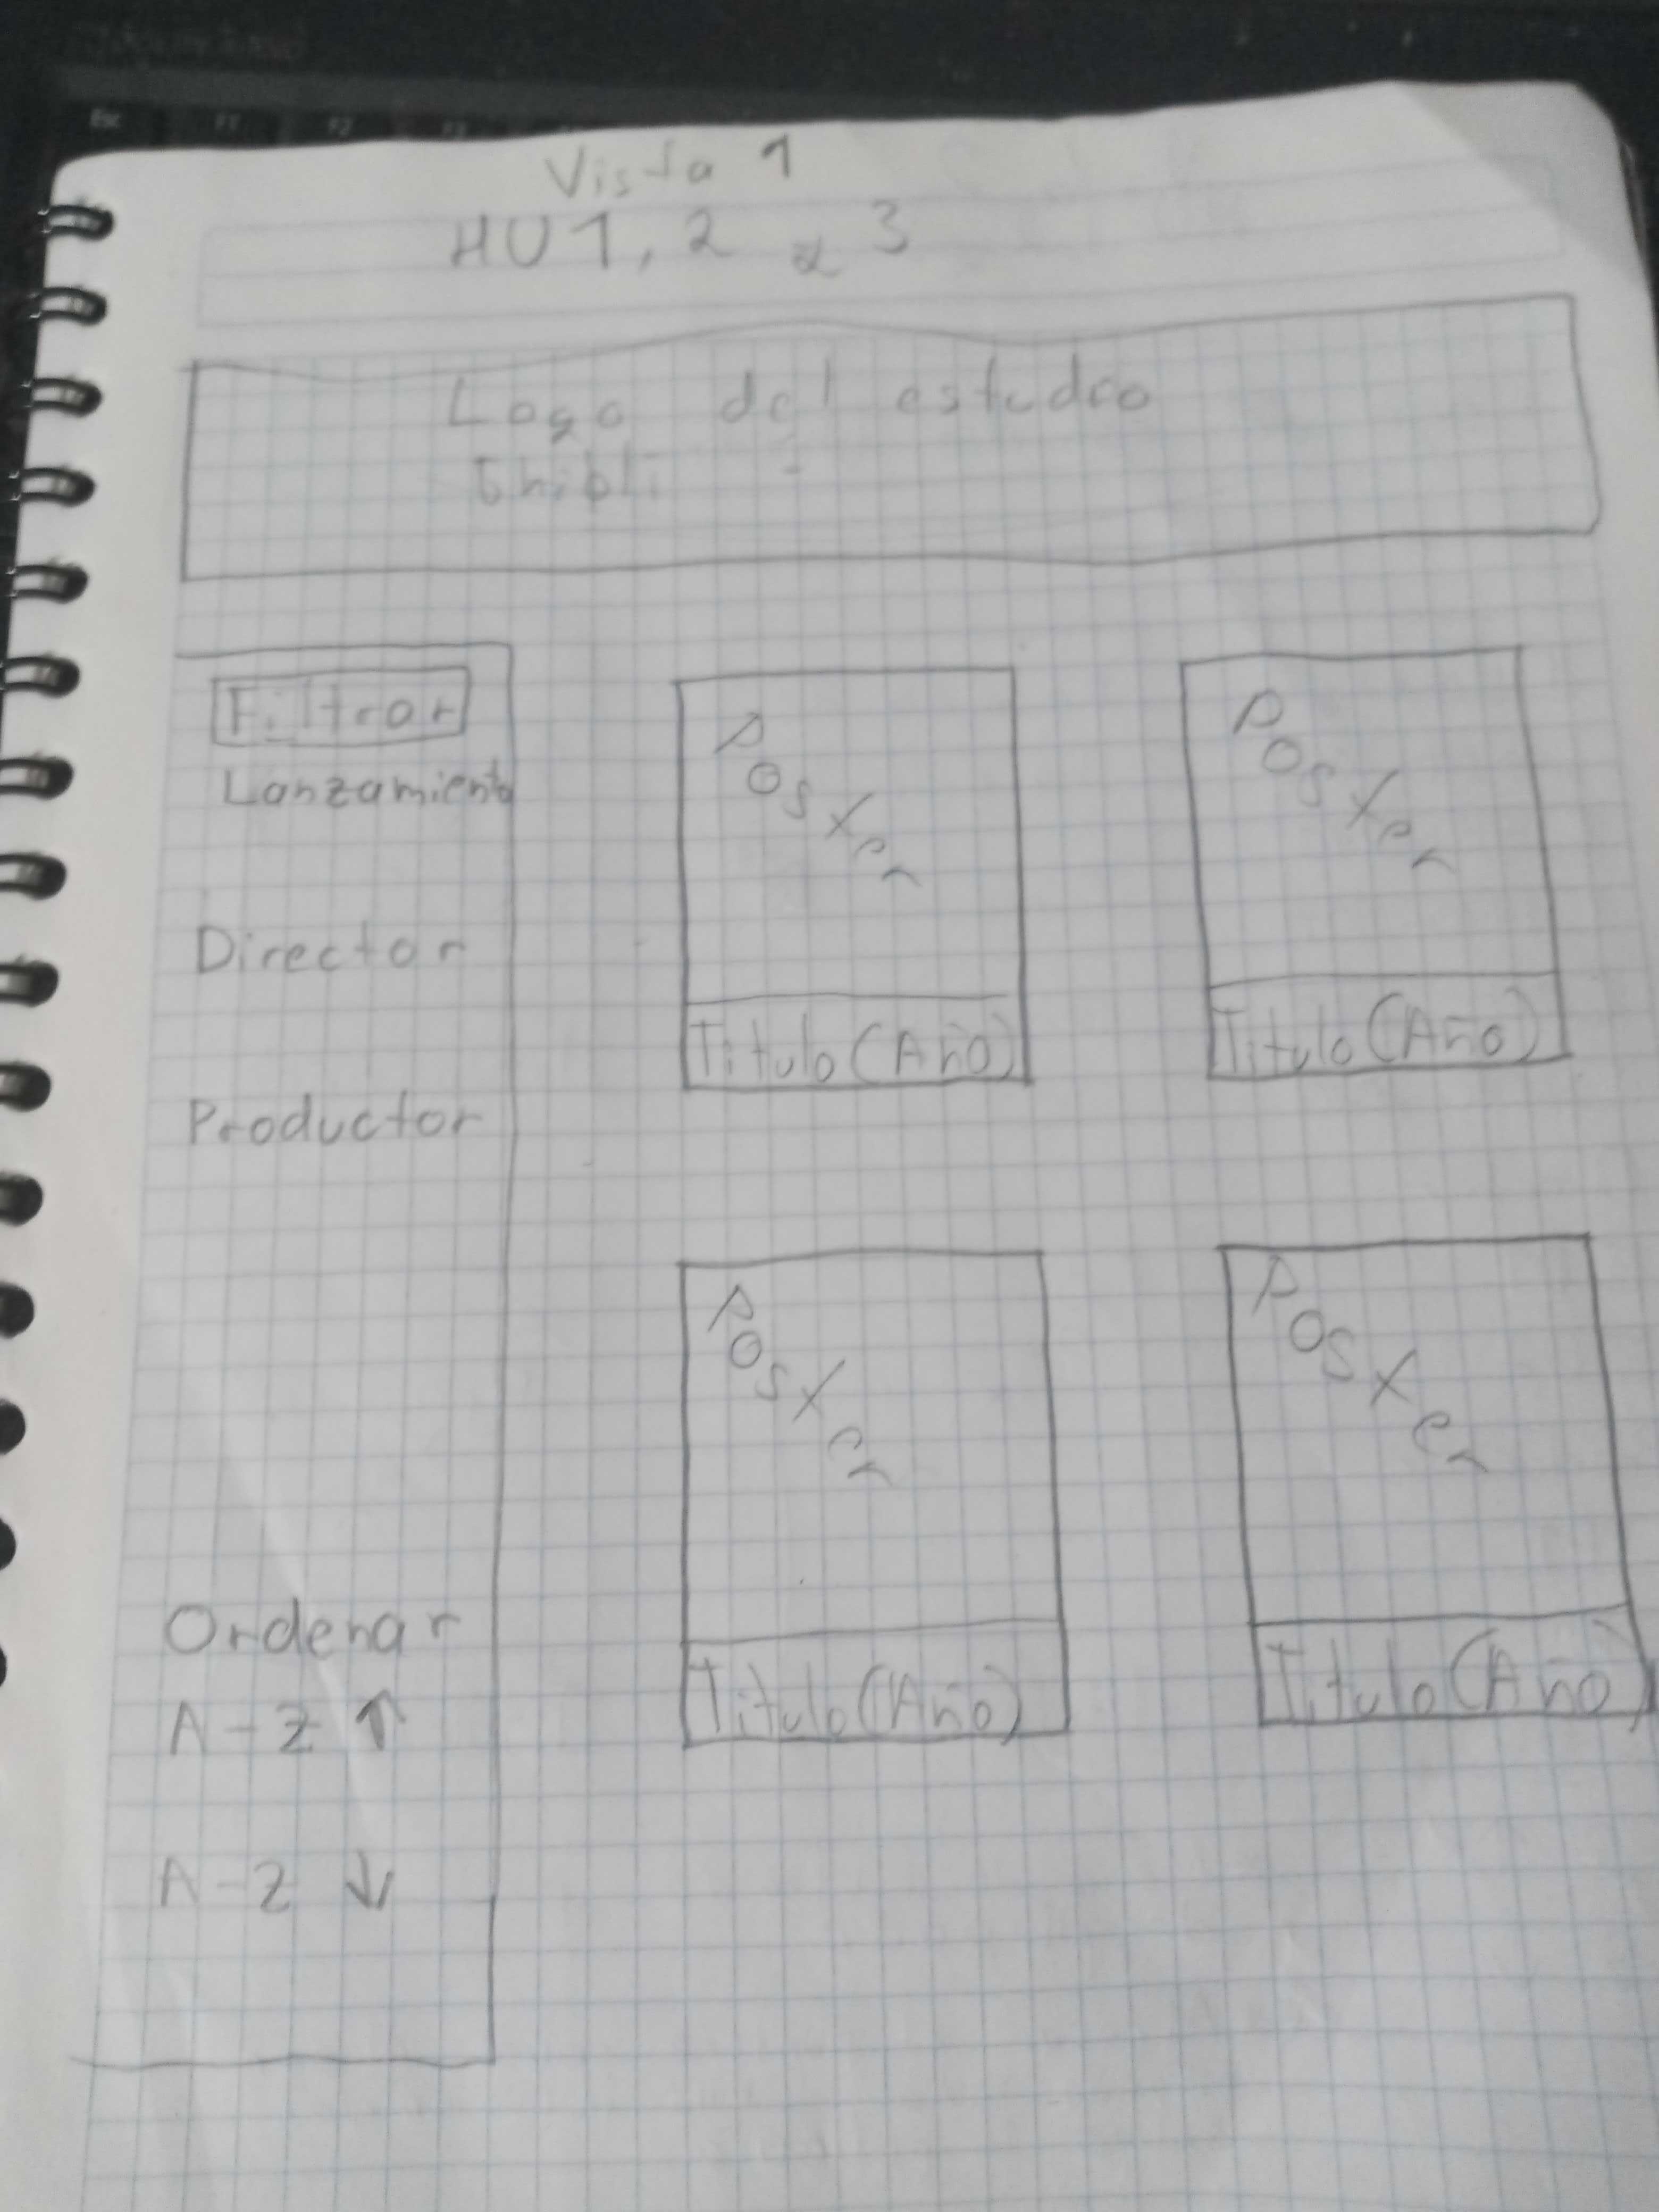 Esc F1 F2 F3
Vista 1
HU 1, 2 y 3
Logo del estudio
Ghibli
Filtrar
Lanzamiento
Director
Productor
Ordenar
A-Z ↑
A-Z ↓
Poster
Titulo (Año)
Poster
Titulo (Año)
Poster
Titulo (Año)
Poster
Titulo (Año)